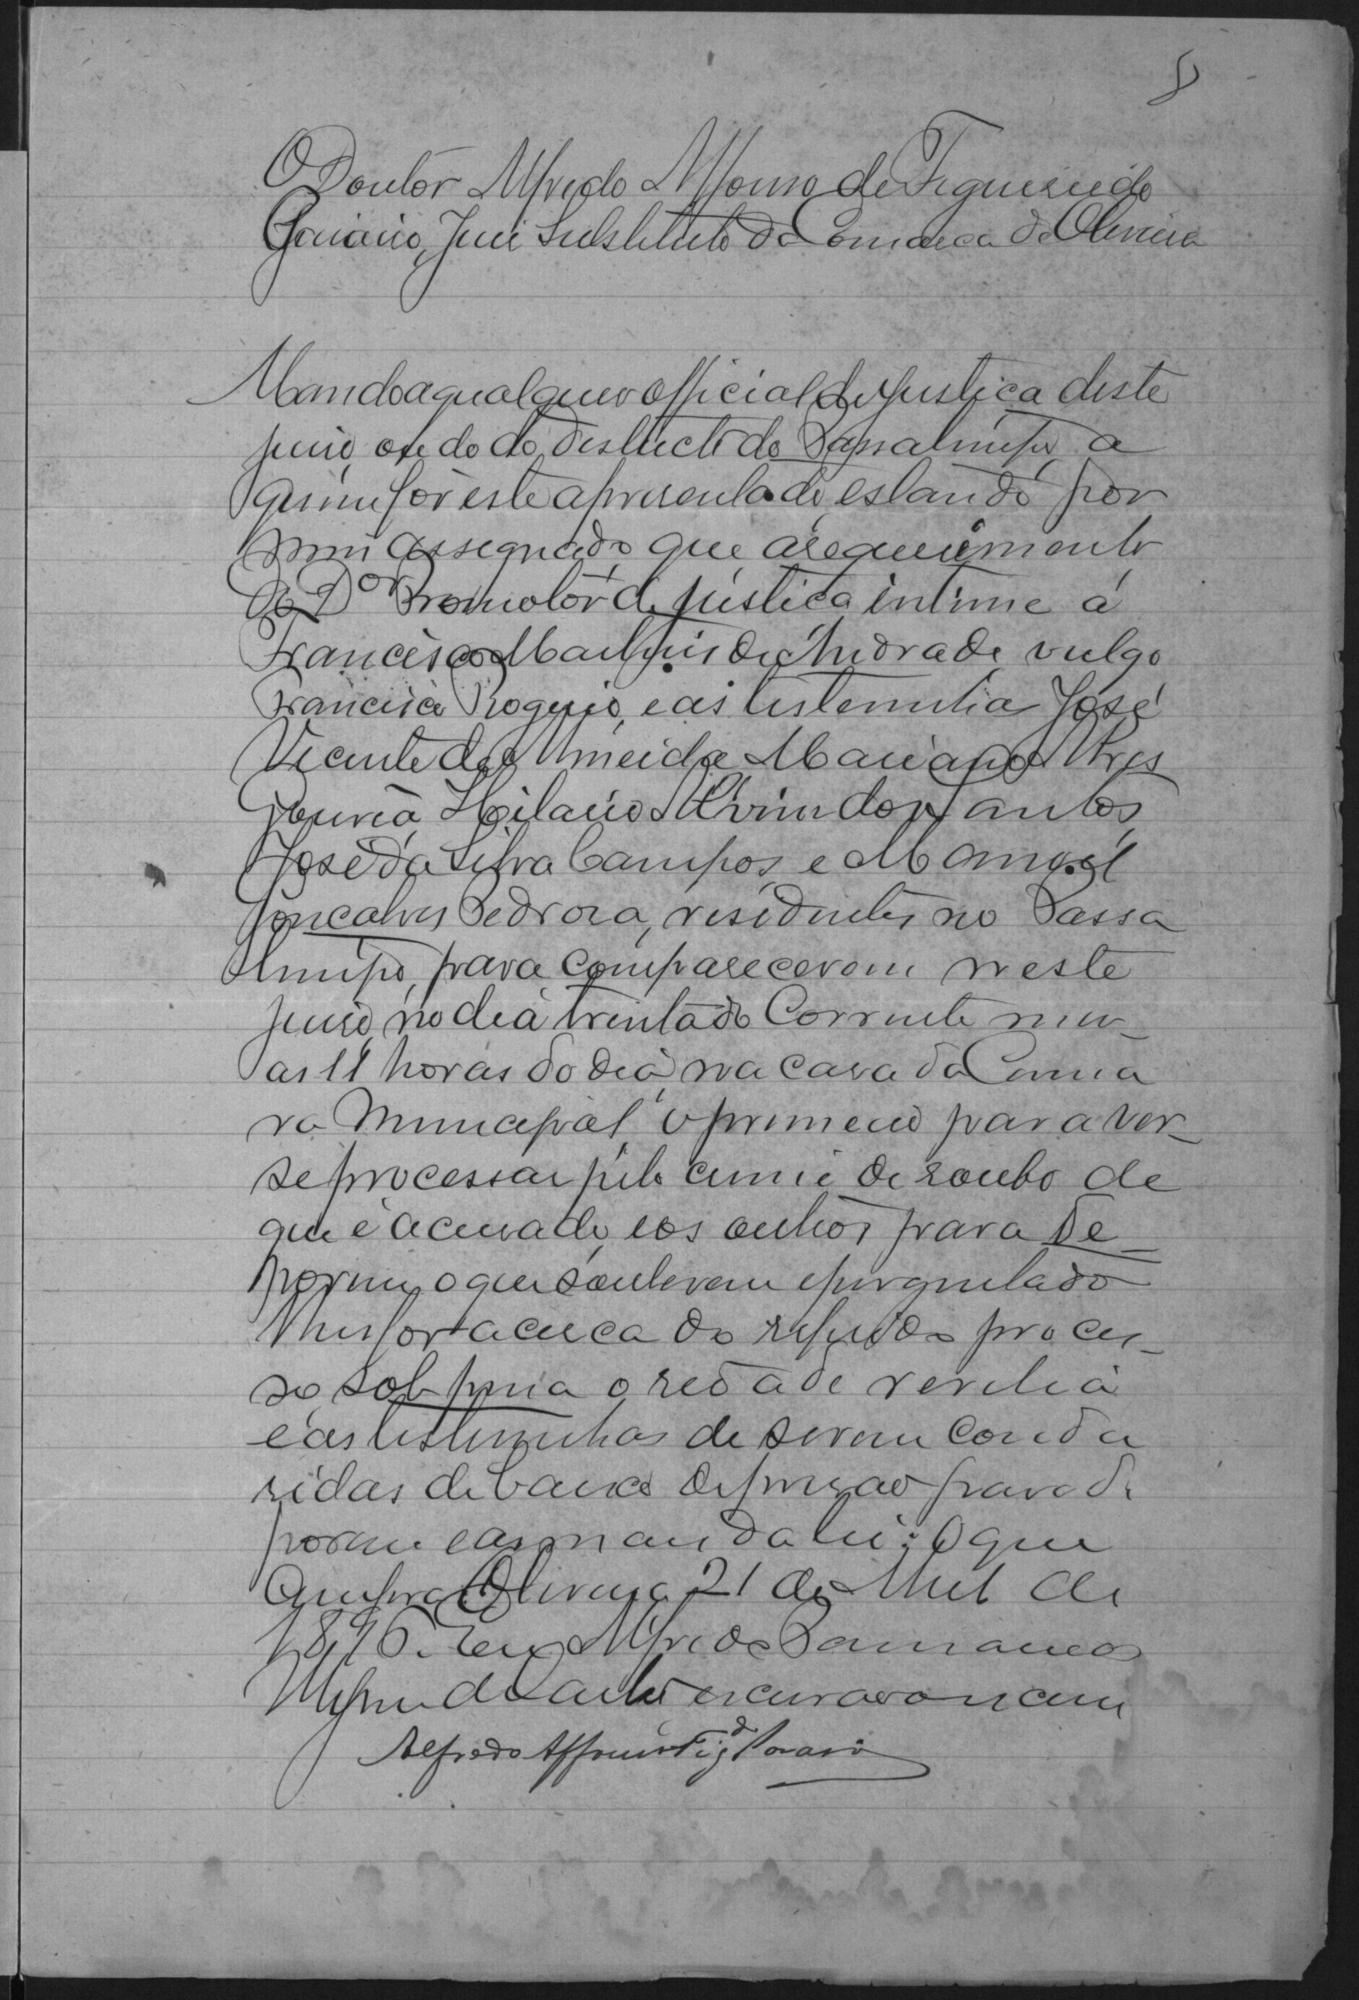 8
O Doutor Alfredo Affonso de Figueiredo
Juis Substituto da Comarca de Oliveira
Mando a qualquer official de Justiça deste
juiso, ou do do districto do Passatempo, a
quem for este apresentado, estando por
mim assegnado, que a requerimento
do Dor Promotor de justiça intime á
Francisco Marques de Andrade, vulgo
Francisco Rogerio, e as testemunhas José
Vicente de Almeida Mariano Alves
Gouvêa, Hilario Alvim dos Santos,
José da Silva Campos, e Manoel
Gonçalves Pedroza, residentes no Passa
tempo, para comparecerem neste
juiso, no dia trinta do Corrente mez
as 11 horas do dia, na casa da Cama
ra Municipal, o primeiro para ver-
se processar pelo crime de roubo de
que é acusado, e os outros para de-
porem, o que souberem e perguntado
lhes for acerca do referido proces-
so, sob pena o reo a de revelia
e as testemunhas de serem condu
sidas debaixo de prisão para de
porem e as mais da lei: O que
Cumpra. Oliveira 21 de Abril de
1896. Eu, Alfredo
de Castro escrivão o escrevi
Alfredo Affonso Figdo